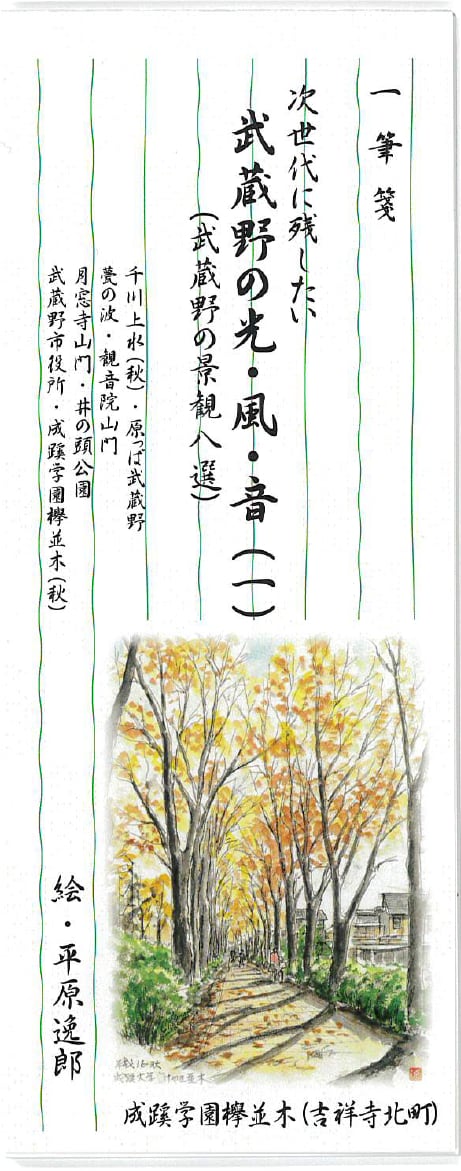 一筆箋
次世代に残したい
武蔵野の光・風・音(一)
(武蔵野の景観八選)
千川上水(秋)・原っぱ武蔵野
甍の波・観音院山門
月窓寺山門・井の頭公園
武蔵野市役所・成蹊学園欅並木(秋)
絵・平原逸郎
成蹊学園欅並木(吉祥寺北町)